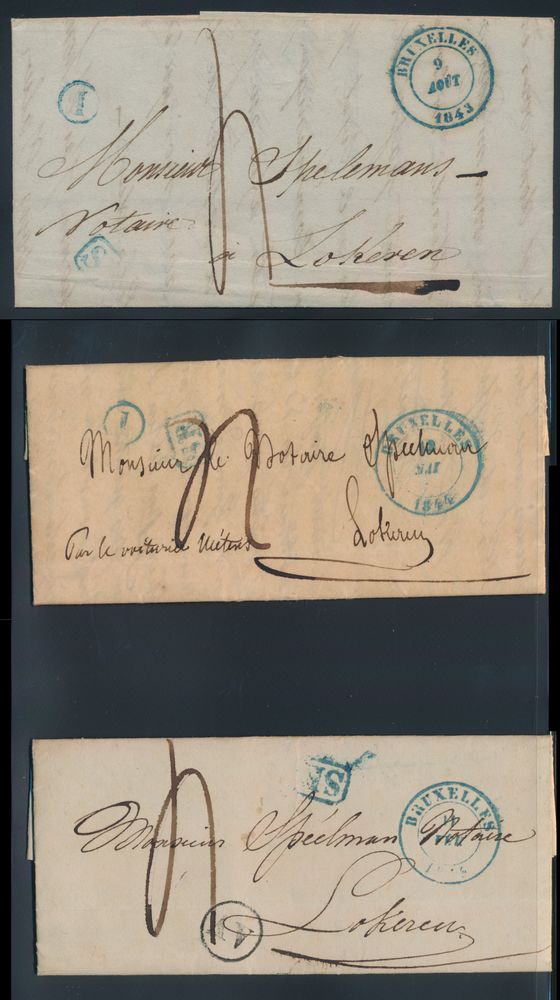 BRUXELLES
9
AOÛT
1843
I
Monsieur Spelemans
Notaire
à Lokeren
BRUXELLES
MAI
1844
1
Monsieur le Notaire Speelman
Par le voiturier
Lokeren
BRUXELLES
Monsieur Spéelman Notaire
Lokeren